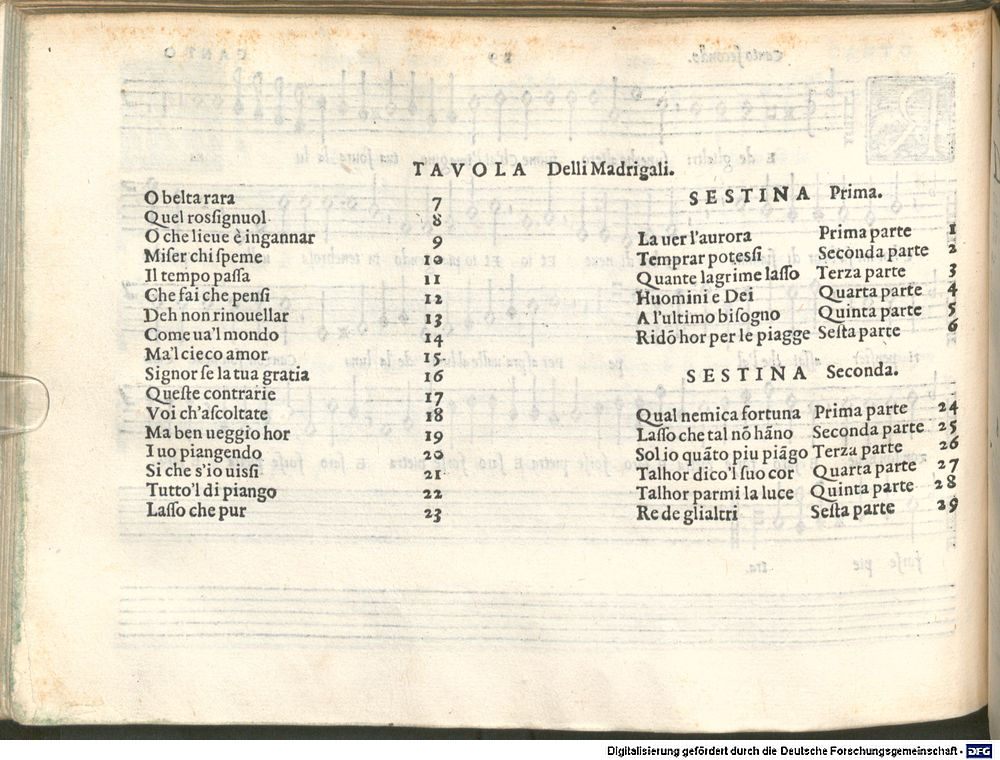 TAVOLA Delli Madrigali.
O belta rara 7
Quel rossignuol 8
O che lieue è ingannar 9
Miser chi speme 10
Il tempo passa 11
Che fai che pensi 12
Deh non rinouellar 13
Come ua'l mondo 14
Ma'l cieco amor 15
Signor se la tua gratia 16
Queste contrarie 17
Voi ch'ascoltate 18
Ma ben ueggio hor 19
I uo piangendo 20
Si che s'io uissi 21
Tutto'l di piango 22
Lasso che pur 23
SESTINA Prima.
La uer l'aurora Prima parte 1
Temprar potessi Seconda parte 2
Quante lagrime lasso Terza parte 3
Huomini e Dei Quarta parte 4
A l'ultimo bisogno Quinta parte 5
Ridõ hor per le piagge Sesta parte 6
SESTINA Seconda.
Qual nemica fortuna Prima parte 24
Lasso che tal nõ hãno Seconda parte 25
Sol io quãto piu piãgo Terza parte 26
Talhor dico'l suo cor Quarta parte 27
Talhor parmi la luce Quinta parte 28
Re de glialtri Sesta parte 29
Digitalisierung gefördert durch die Deutsche Forschungsgemeinschaft - DFG